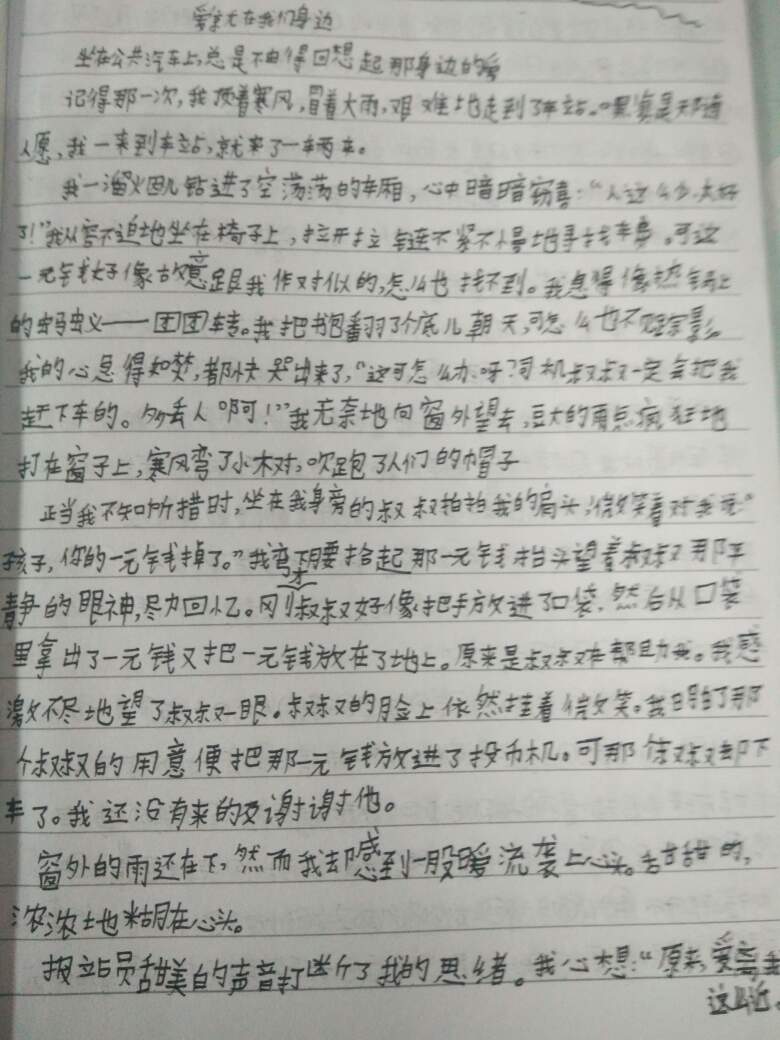 爱就在我们身边
坐在公共汽车上,总是不由得回想起那身边的爱
记得那一次,我顶着寒风,冒着大雨,艰难地走到了车站。嘿真是天随
人愿,我一来到车站,就来了一辆车。
我一溜火四儿钻进了空荡荡的车厢,心中暗暗窃喜:“人这么少,太好
了!”我从容不迫地坐在椅子上,拉开拉链不紧不慢地寻找车费。可这
一元钱好像故意跟我作对似的,怎么也找不到。我急得像热锅上
的蚂蚁——团团转。我把书包翻了个底儿朝天,可怎么也不见踪影。
我的心急得如焚,都快哭出来了,“这可怎么办呀?司机叔叔一定会把我
赶下车的。多丢人啊!”我无奈地向窗外望去,豆大的雨点疯狂地
打在窗子上,寒风弯了小树,吹跑了人们的帽子
正当我不知所措时,坐在我身旁的叔叔拍拍我的肩头,微笑着对我说“
孩子,你的一元钱掉了。”我弯下腰要拾起那一元钱抬头望着叔叔那平
静的眼神,尽力回忆。刚才叔叔好像把手放进了口袋,然后从口袋
里拿出了一元钱又把一元钱放在了地上。原来是叔叔在帮助我。我感
激不尽地望了叔叔一眼。叔叔的脸上依然挂着微笑。我明白了那
个叔叔的用意便把那一元钱放进了投币机。可那位叔叔却下
车了。我还没有来的及谢谢他。
窗外的雨还在下,然而我却感到一股暖流袭上心头。甜甜的,
浓浓地粘在心头。
报站员甜美的声音打断了我的思绪。我心想:“原来,爱离我
这么近。